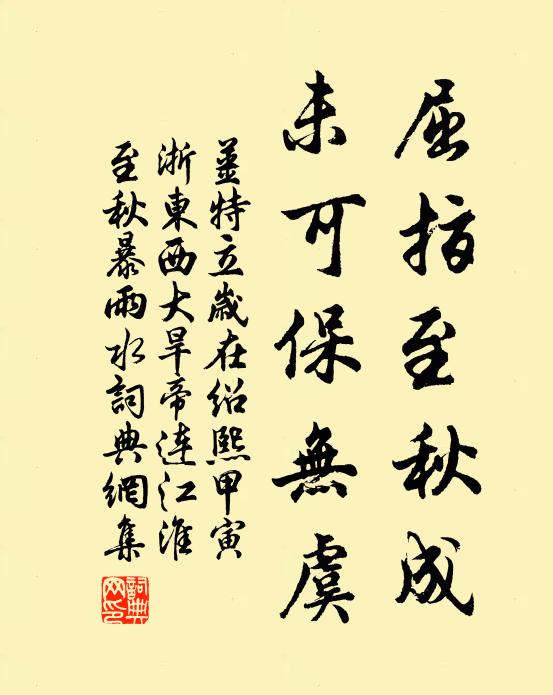 屈指至秋成
未可保無虞
姜特立歲在紹熙甲寅
浙東西大旱帝連江淮
至秋暴雨水詞典網集
詞典网印